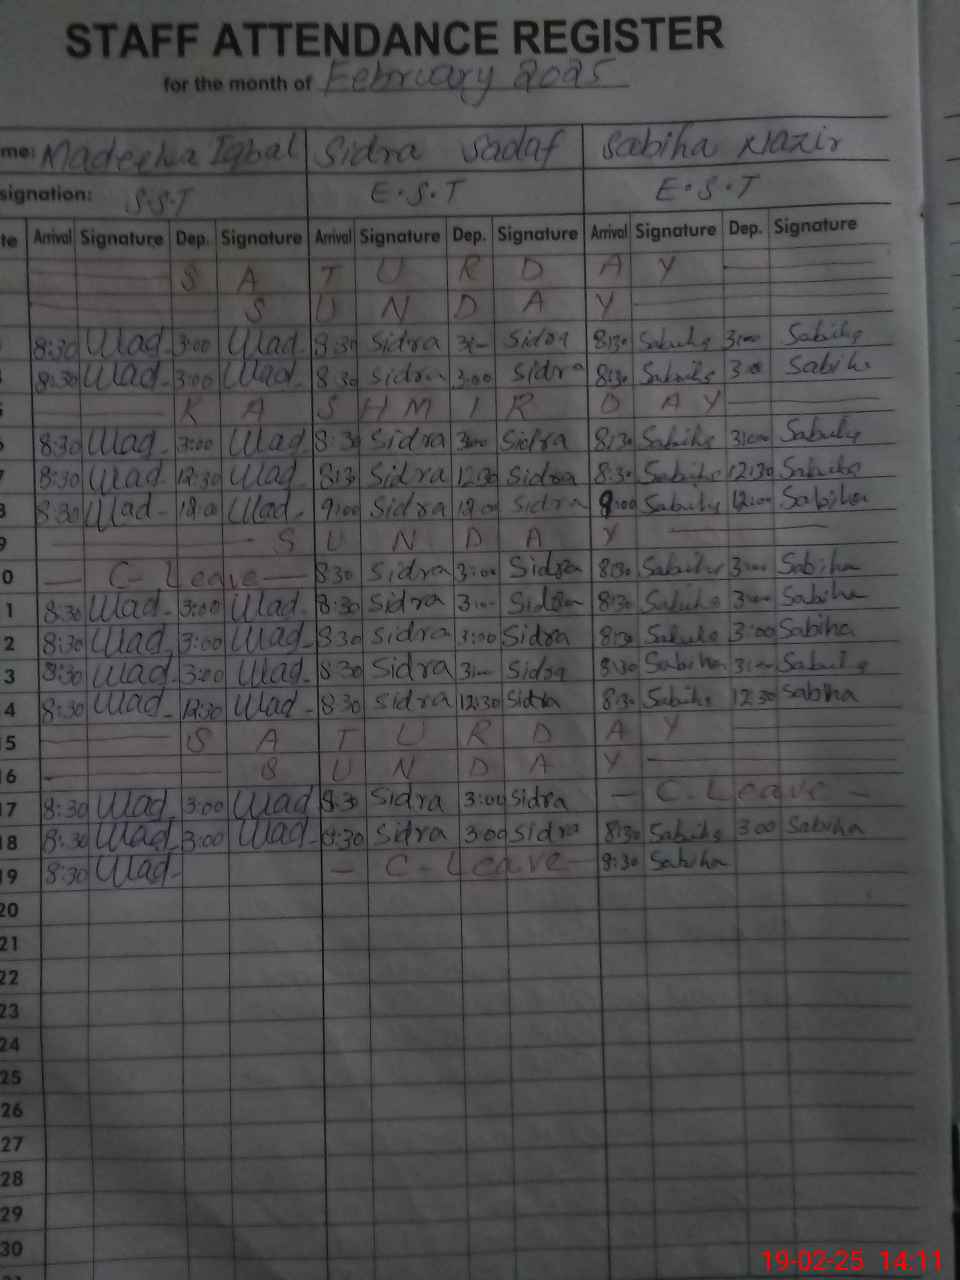 STAFF ATTENDANCE REGISTER
for the month of February 2025
me: Madeeha Iqbal Sidra Sadaf Sabiha Nazir
signation: S.S.T E.S.T E.S.T
te Arrival Signature Dep. Signature Arrival Signature Dep. Signature Arrival Signature Dep. Signature
S A T U R D A Y
S U N D A Y
8:30 3:00 8:30 Sidra 3:00 Sidra 8:30 Sabiha 3:00 Sabiha
8:30 3:00 8:30 Sidra 3:00 Sidra 8:30 Sabiha 3:00 Sabiha
K A S H M I R D A Y
8:30 3:00 8:30 Sidra 3:00 Sidra 8:30 Sabiha 3:00 Sabiha
7 8:30 12:30 8:30 Sidra 12:30 Sidra 8:30 Sabiha 12:30 Sabiha
8 8:30 12:00 9:00 Sidra 12:00 Sidra 9:00 Sabiha 12:00 Sabiha
9 S U N D A Y
0 C- Leave 8:30 Sidra 3:00 Sidra 8:30 Sabiha 3:00 Sabiha
1 8:30 3:00 8:30 Sidra 3:00 Sidra 8:30 Sabiha 3:00 Sabiha
2 8:30 3:00 8:30 Sidra 3:00 Sidra 8:30 Sabiha 3:00 Sabiha
3 8:30 3:00 8:30 Sidra 3:00 Sidra 8:30 Sabiha 3:00 Sabiha
4 8:30 12:30 8:30 Sidra 12:30 Sidra 8:30 Sabiha 12:30 Sabiha
15 S A T U R D A Y
16 S U N D A Y
17 8:30 3:00 8:30 Sidra 3:00 Sidra - C. Leave -
18 8:30 3:00 8:30 Sidra 3:00 Sidra 8:30 Sabiha 3:00 Sabiha
19 8:30 - C- Leave 8:30 Sabiha
20
21
22
23
24
25
26
27
28
29
30
19-02-25 14:11